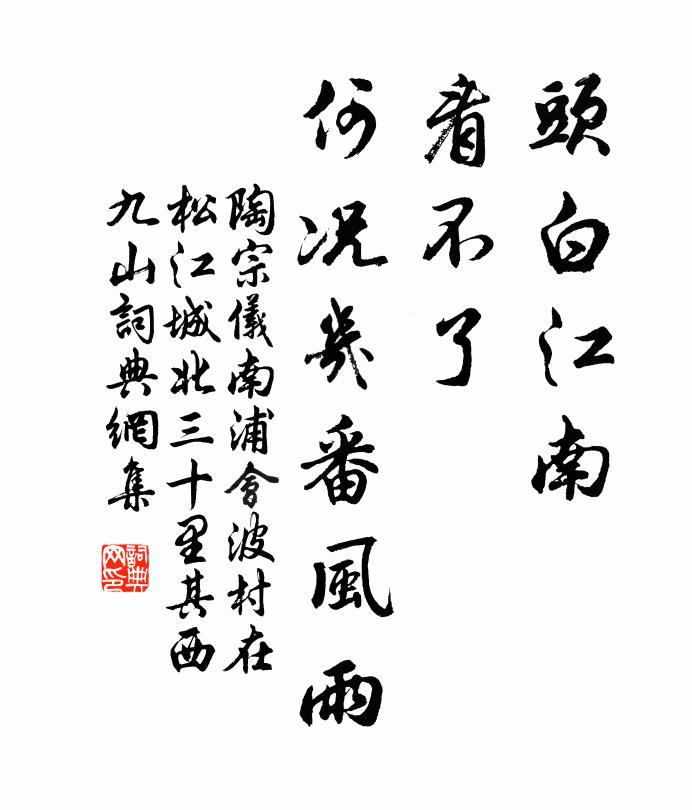 頭白江南
看不了
何況幾番風雨
陶宗儀南浦會波村在
松江城北三十里其西
九山詞典網集
詞典
网印